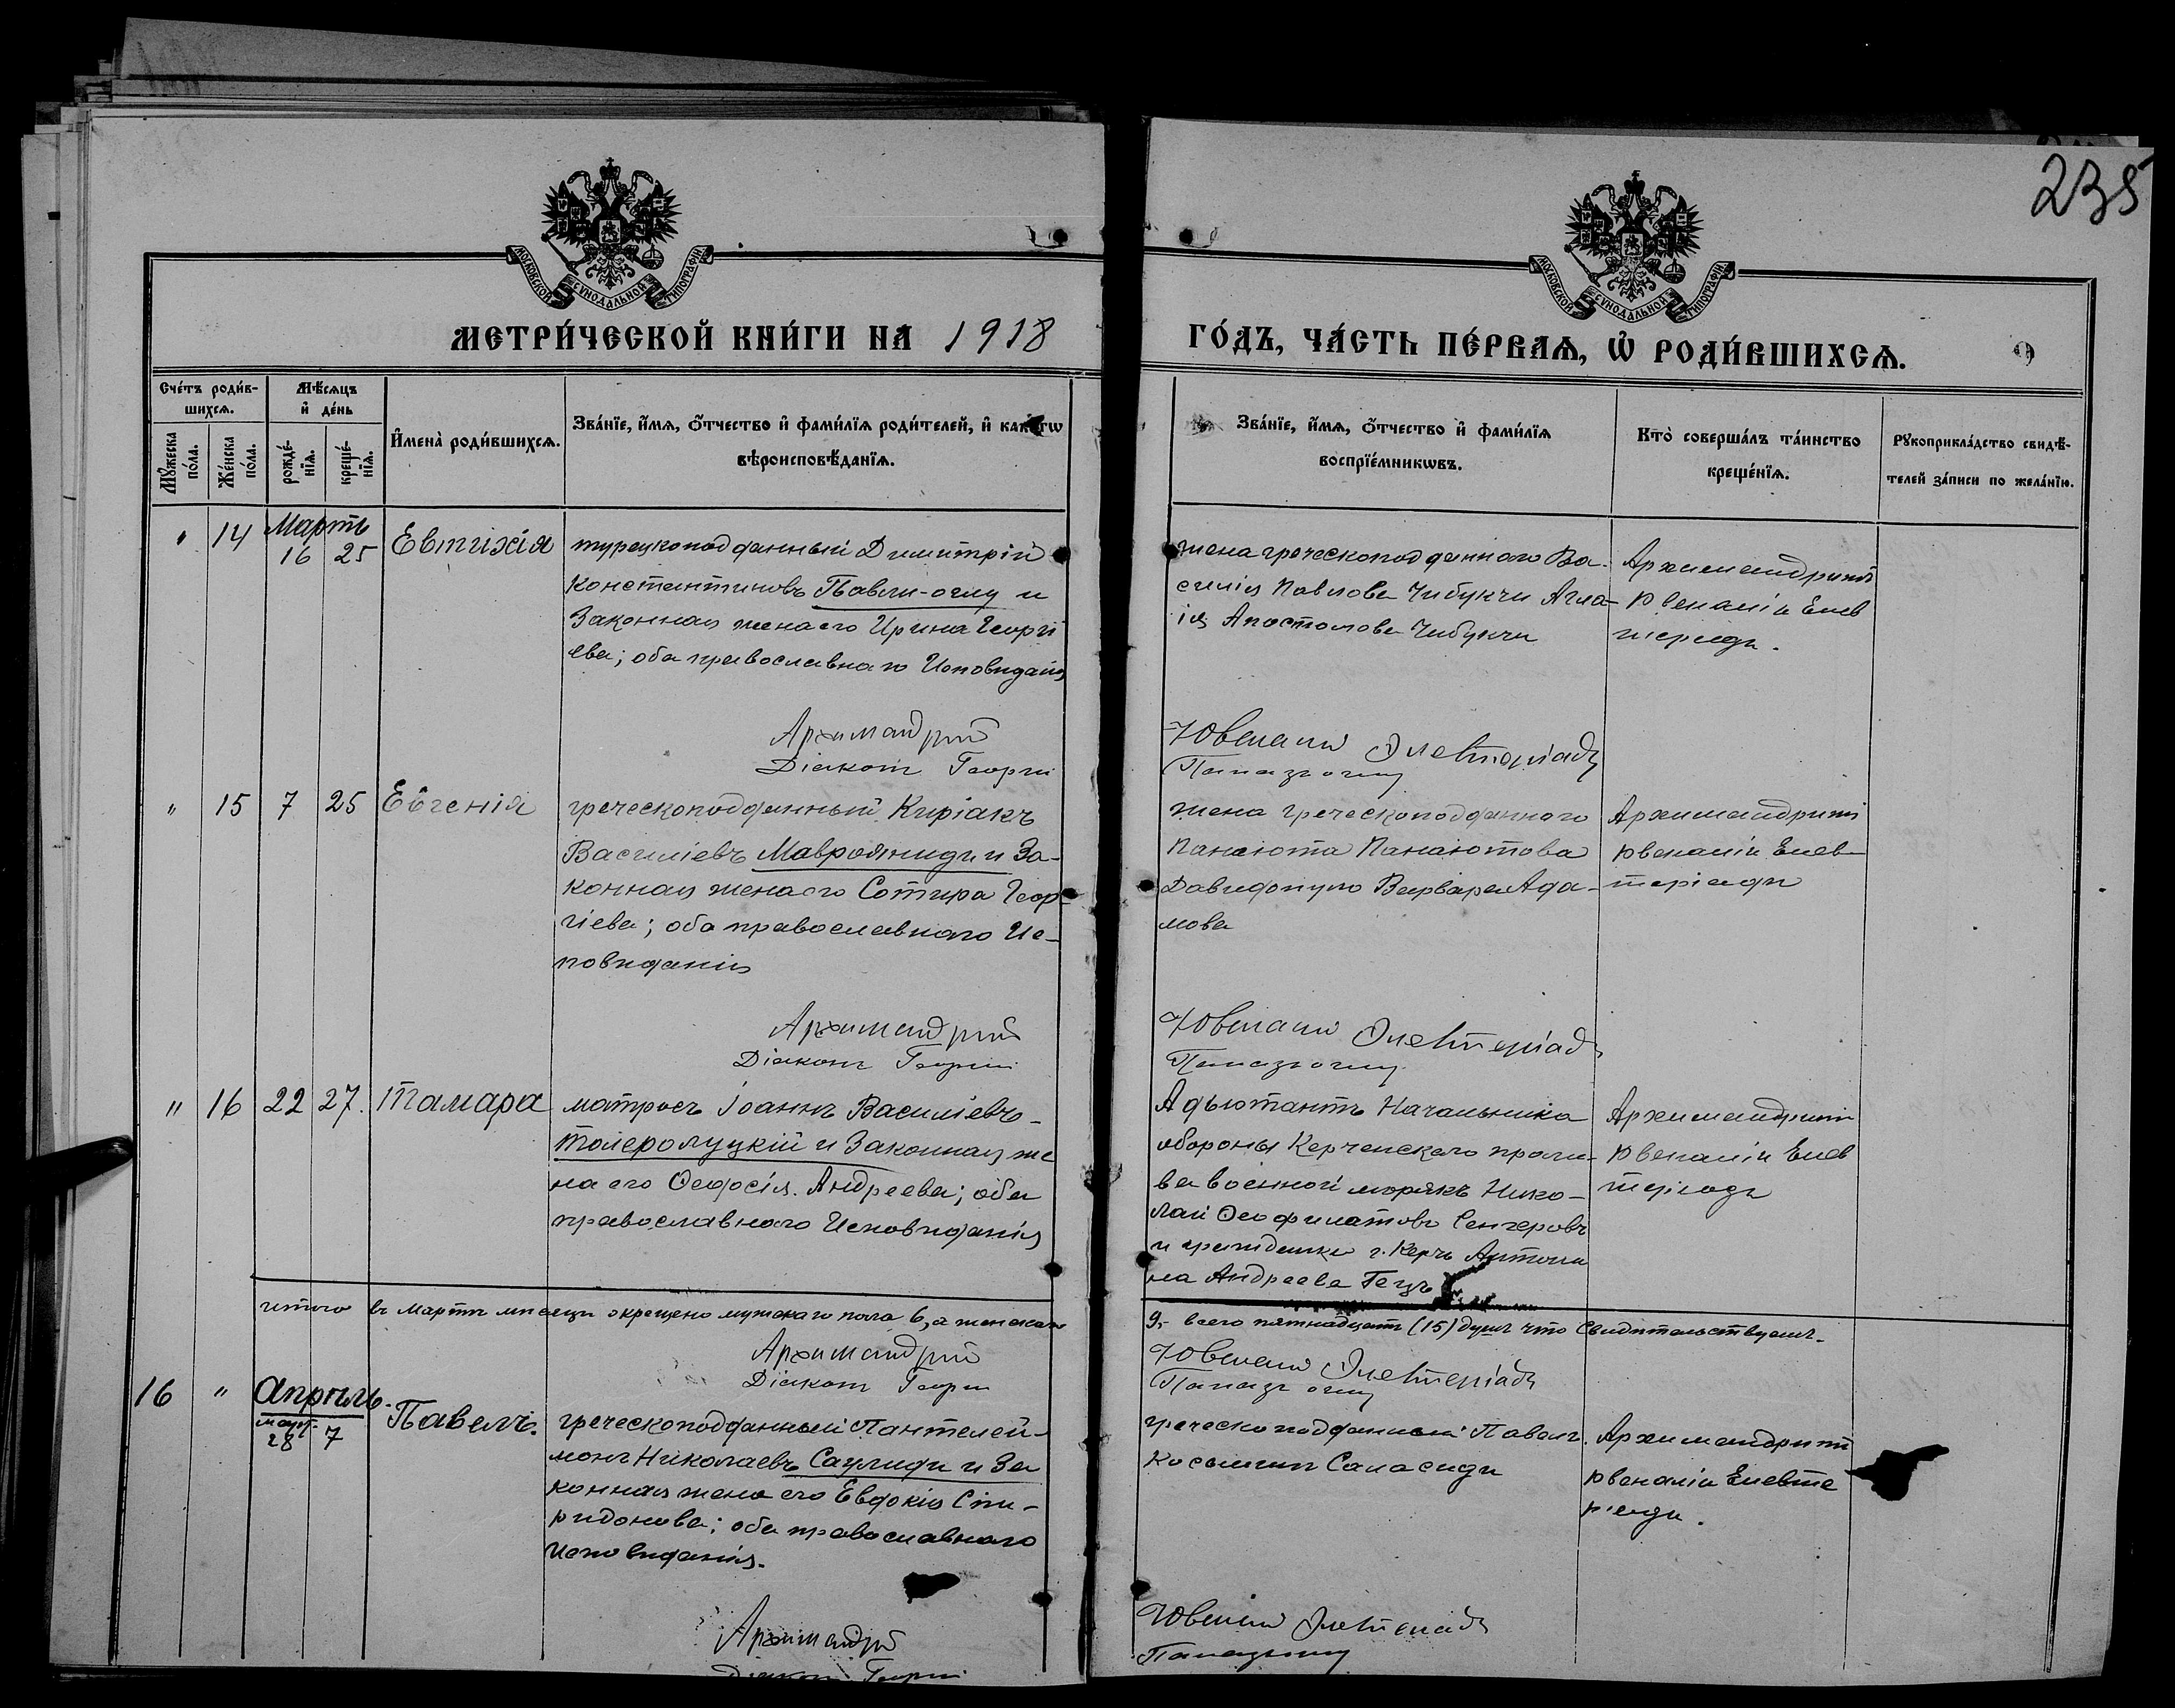 235
МОСКОВСКОЙ СУНОДАЛЬНОЙ ТИПОГРАФІИ
МОСКОВСКОЙ СУНОДАЛЬНОЙ ТИПОГРАФІИ
МЕТРИ́ЧЕСКОЙ КНИ́ГИ НА 1918
ГО́ДЪ, ЧА́СТЬ ПЕ́РВАѦ, Ѡ РОДИ́ВШИХСѦ.
9
Сче́тъ роди́в-
шихсѧ.
Мꙋ́жеска по́ла.
Же́нска по́ла.
Мѣ́сѧцъ
и҆ де́нь
рожде́-
нїѧ.
креще́-
нїѧ.
И҆мена̀ роди́вшихсѧ.
Зва́нїе, и҆́мѧ, ѻ҆́тчество и҆ фами́лїѧ роди́телей, и҆ како́гѡ
вѣроисповѣ́данїѧ.
Зва́нїе, и҆́мѧ, ѻ҆́тчество и҆ фами́лїѧ
воспрїе́мникѡвъ.
Кто̀ соверша́лъ та́инство
креще́нїѧ.
Рꙋкоприкла́дство свидѣ́-
телей за́писи по жела́нїю.
" 14 Мартъ
16 25 Евтихія
турецкоподданный Димитрій
Константиновъ Павли-оглу и
Законная жена его Ирина Георгі
ева; оба православнаго Исповѣданія
жена греческоподданнаго Ва-
силія Павлова Чибукчи Агла-
ія Апостолова Чибукчи
Архимандритъ
Ювеналій Елев
теріади.
Архимандритъ
Діаконъ Георгій
Ювеналій Элевтеріади
Папазъ оглу
" 15 7 25 Евгенія
греческоподданный Киріакъ
Василіевъ Мавроѳниди и За-
конная жена его Сотира Геор-
гіева; оба православнаго Ис-
повѣданія
жена греческоподданнаго
Панаіота Панаіотова
Давидопуло Варвара Ада-
мова
Архимандритъ
Ювеналій Елев-
теріади
Архимандритъ
Діаконъ Георгій
Ювеналій Элевтеріади
Папазъ оглу
" 16 22 27. Тамара
матросъ Іоаннъ Василіевъ
и Законная же
на его Ѳеодосія Андреева; оба
православнаго Исповѣданія
Адьютантъ Начальника
обороны Керченскаго проли-
ва военной морякъ Нико-
лай Ѳеофилатовъ Сенгеровъ
и гражданка г. Керчь Антони
на Андреева Гецъ
Архимандритъ
Ювеналій Елев
теріади
итого въ Мартѣ мѣсяцѣ окрещено мужскаго пола 6, а женскаго
9,- всего пятнадцать (15) душъ что Свидѣтельствуемъ.
Архимандритъ
Діаконъ Георгій
Ювеналій Элевтеріади
Папазъ оглу
16 " Апрѣль.
март.
28 7 Павелъ.
греческоподданный Пантелей-
монъ Николаевъ Саулиди и За
конная жена его Евдокія Спи-
ридонова; оба православнаго
Исповѣданія.
греческоподданный Павелъ
Косьмичъ Саласиди
Архимандритъ
Ювеналій Елевте
ріади.
Архимандритъ
Діаконъ Георгій
Ювеналій Элевтеріади
Папазъ оглу